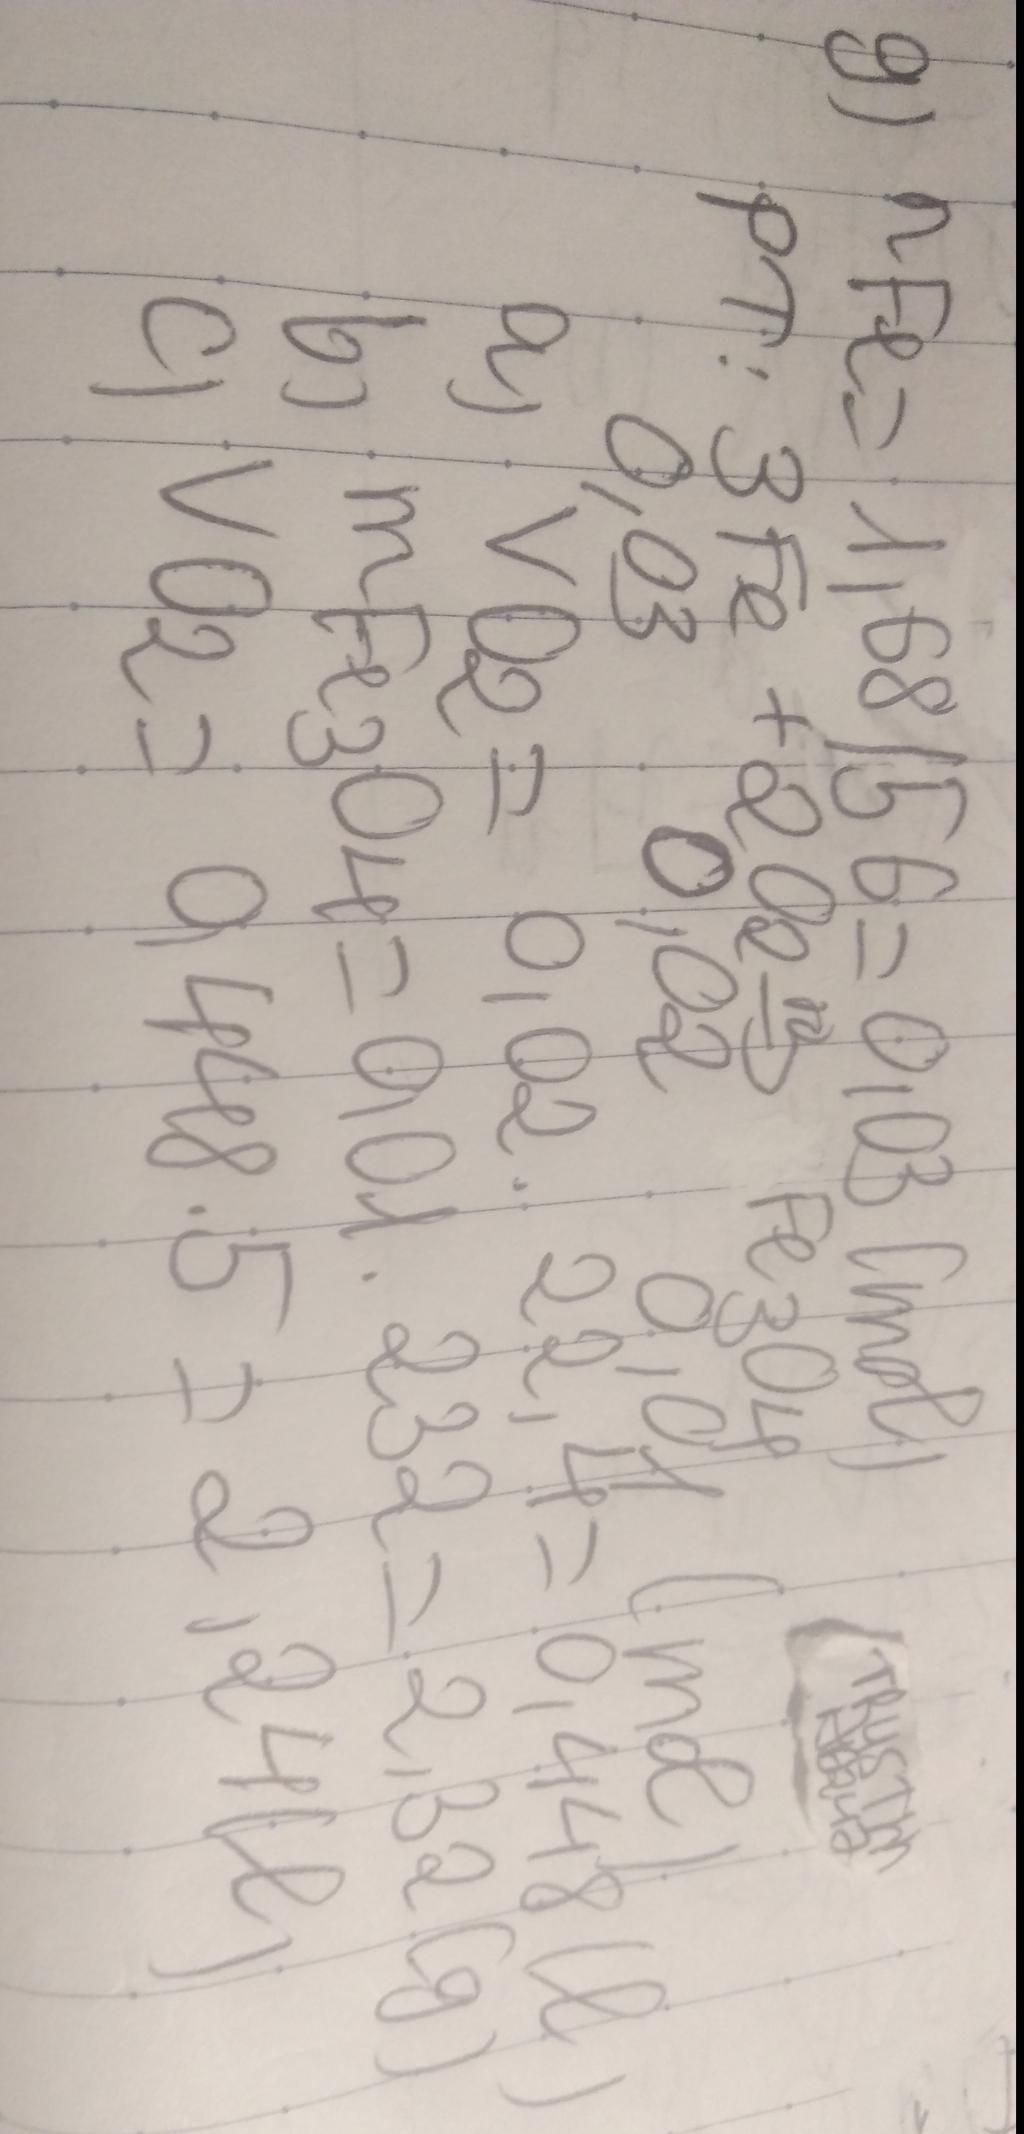 g) nFe = 1,68/56 = 0,03 (mol)
PT: 3Fe + 2O2 to→ Fe3O4
0,03 0,02 0,01 (mol)
a) VO2 = 0,02 . 22,4 = 0,448 (l)
b) mFe3O4 = 0,01 . 232 = 2,32 (g)
c) VO2 = 0,448 . 5 = 2,24 (l)